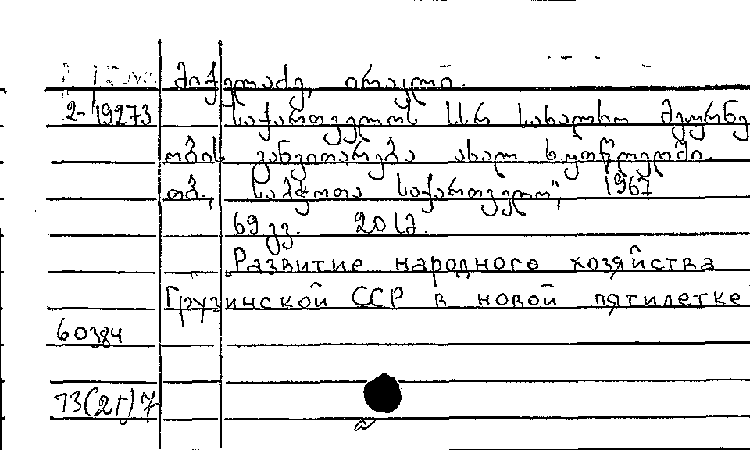 მიქელაძე, ირაკლი.
2-19273 საქართველოს სსრ სახალხო მეურნე
ობის განვითარება ახალ ხუთწლედში.
თბ., "საბჭოთა საქართველო", 1967
69 გვ. 20 სმ.
Развитие народного хозяйства
Грузинской ССР в новой пятилетке
60384
33(2Г)7